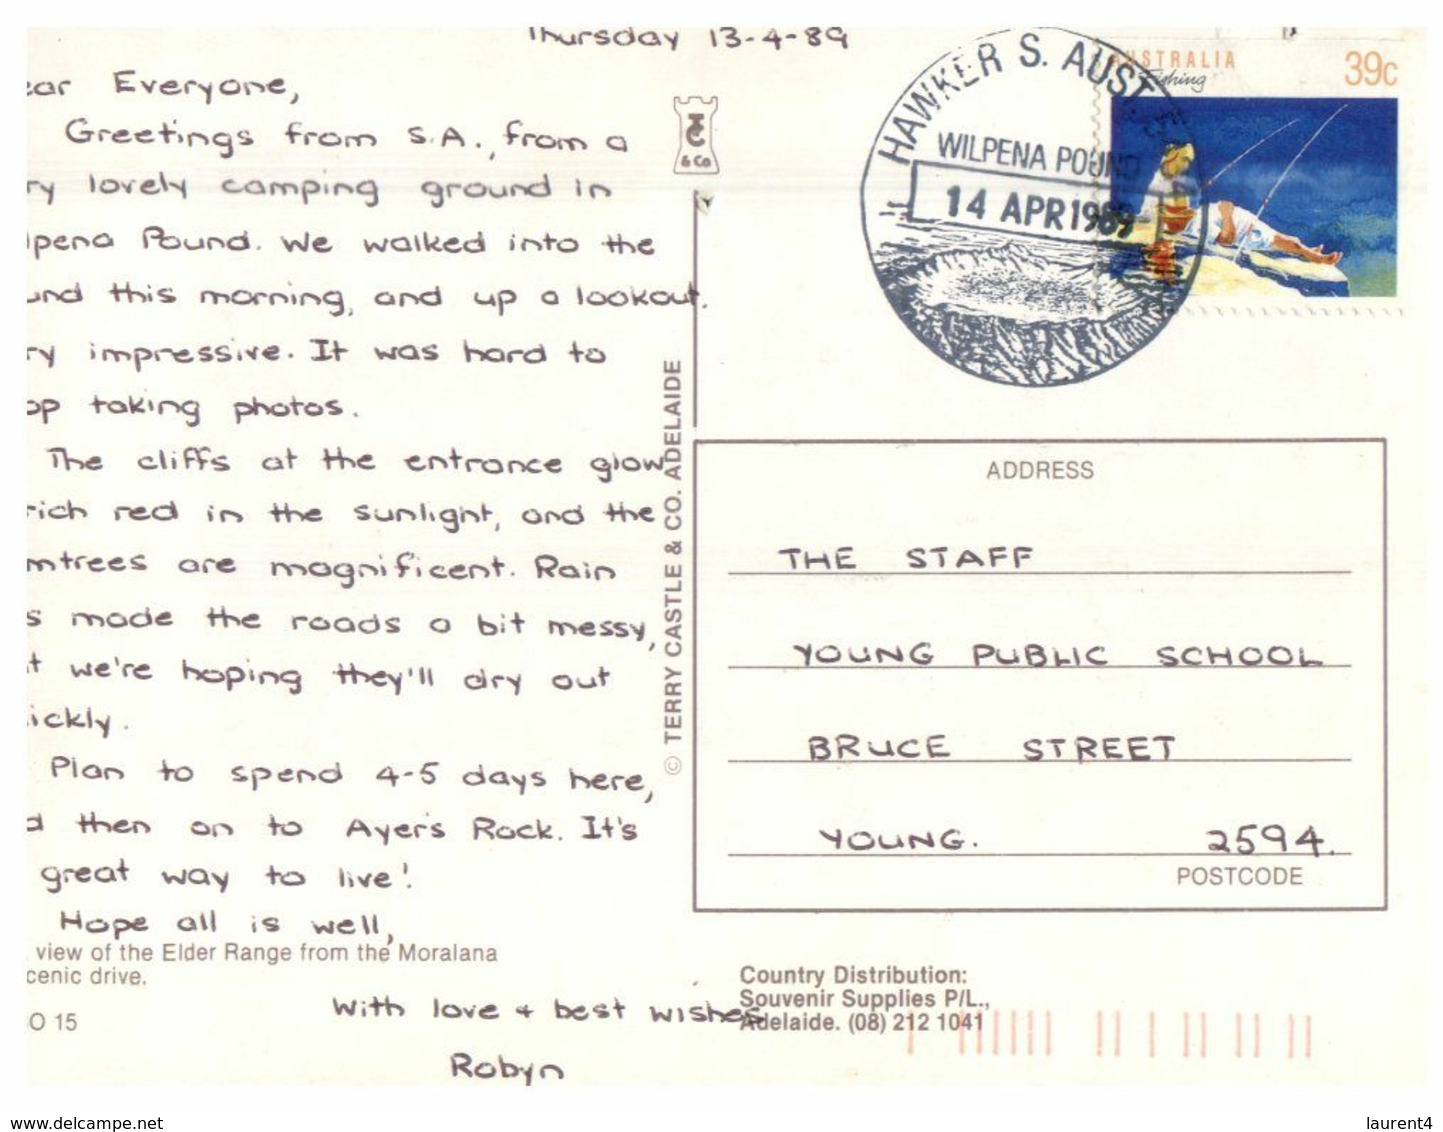 Thursday 13-4-89
ear Everyone,
Greetings from S.A., from a
ry lovely camping ground in
lpena Pound. We walked into the
und this morning, and up a lookout.
ry impressive. It was hard to
op taking photos.
The cliffs at the entrance glow
rich red in the sunlight, and the
mtrees are magnificent. Rain
s made the roads a bit messy,
t we're hoping they'll dry out
ickly.
Plan to spend 4-5 days here,
d then on to Ayers Rock. It's
great way to live!
Hope all is well,
view of the Elder Range from the Moralana
cenic drive.
With love + best wishes
SO 15
Robyn
& Co
© TERRY CASTLE & CO. ADELAIDE
HAWKER S. AUST
WILPENA POUND
14 APR 1989
AUSTRALIA
Fishing
39c
ADDRESS
THE STAFF
YOUNG PUBLIC SCHOOL
BRUCE STREET
YOUNG. 2594.
POSTCODE
Country Distribution:
Souvenir Supplies P/L.,
Adelaide. (08) 212 1041
www.delcampe.net
laurent4